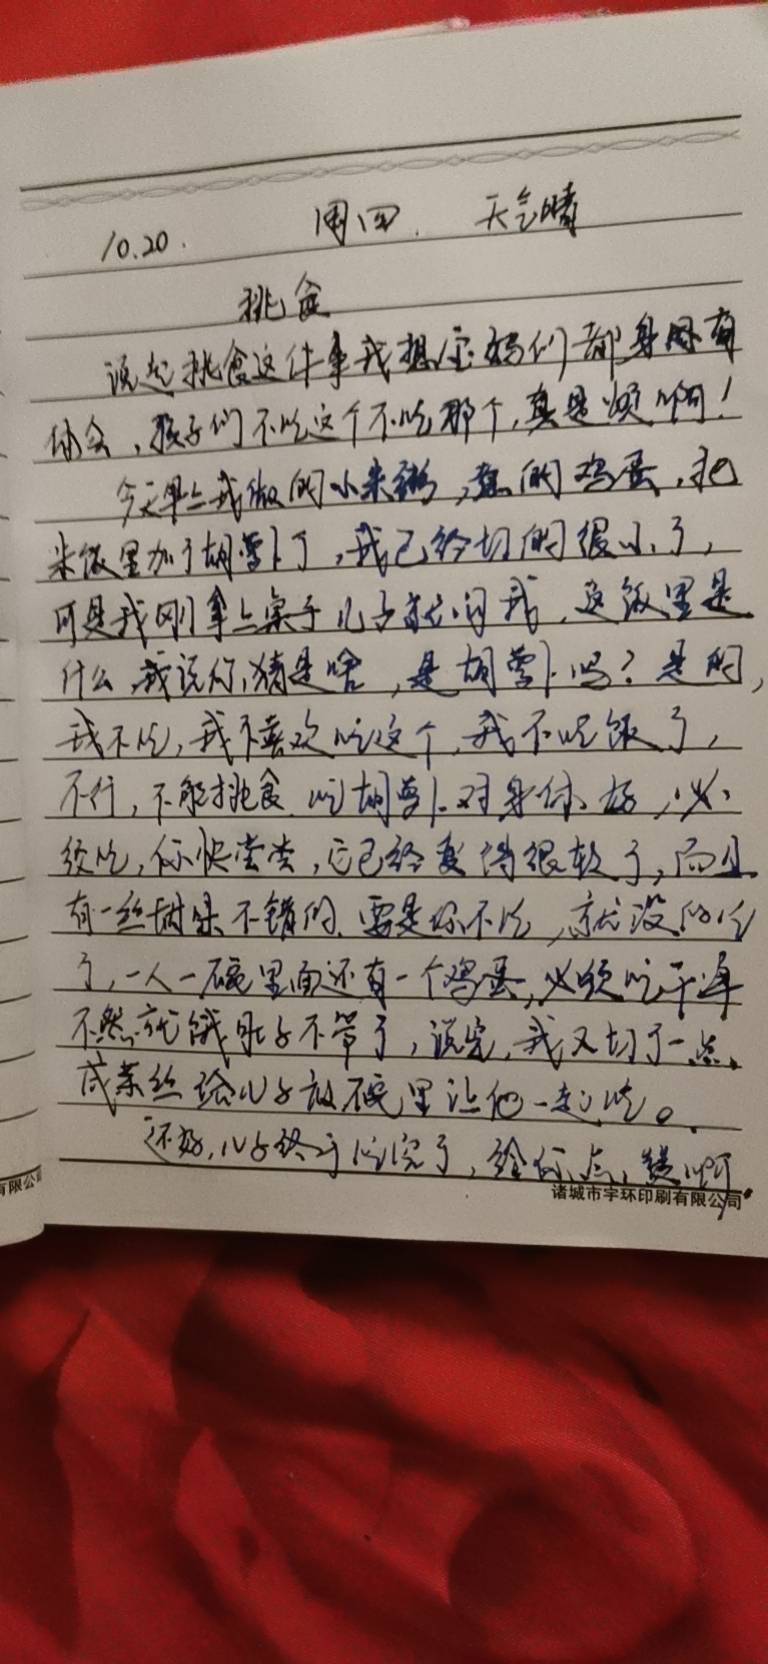 10.20. 周四. 天气晴
挑食
说起挑食这件事我想宝妈们都身同有
体会,孩子们不吃这个不吃那个,真是烦啊!
今天早上我做的小米粥,煮的鸡蛋,把
米饭里加了胡萝卜了,我已经切的很小了,
可是我刚拿上桌子儿子就问我,这饭里是
什么,我说你猜是啥,是胡萝卜吗?是的,
我不吃,我不喜欢吃这个,我不吃饭了,
不行,不能挑食,吃胡萝卜对身体好,必
须吃,你快尝尝,它已经变得很软了,而且
有一丝甜味不错的,要是你不吃,就没的吃
了,一人一碗里面还有一个鸡蛋,必须吃干净
不然就饿肚子不管了,说完,我又切了一点
咸菜丝给儿子放碗里让他一起吃。
还好,儿子终于吃完了,给你点赞啊。
诸城市宇环印刷有限公司
有限公司